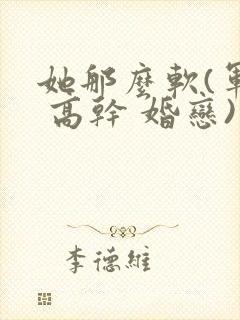 她那麼軟(軍
高幹 婚戀)
李德維